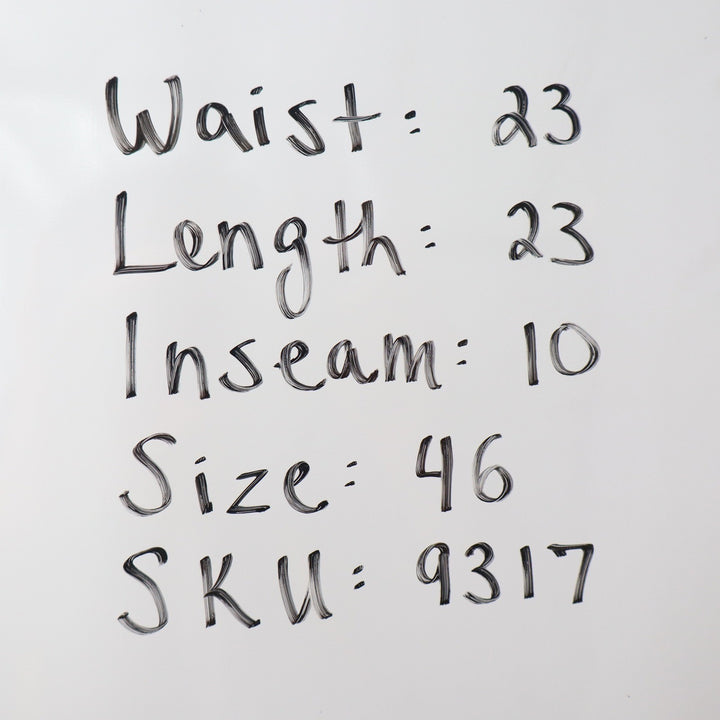 Waist: 23
Length: 23
Inseam: 10
Size: 46
SKU: 9317